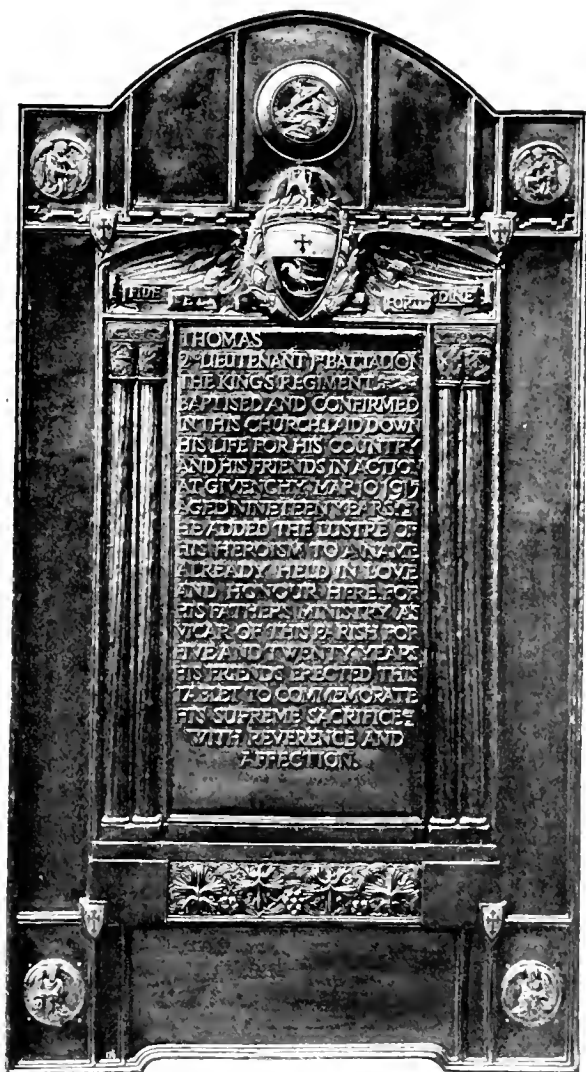 FIDE ET FORTITUDINE
THOMAS
2ND LIEUTENANT 1ST BATTALION
THE KINGS REGIMENT
BAPTISED AND CONFIRMED
IN THIS CHURCH LAID DOWN
HIS LIFE FOR HIS COUNTRY
AND HIS FRIENDS IN ACTION
AT GIVENCHY MAR 10 1915
AGED NINETEEN YEARS
HE ADDED THE LUSTRE OF
HIS HEROISM TO A NAME
ALREADY HELD IN LOVE
AND HONOUR HERE FOR
HIS FATHERS MINISTRY AS
VICAR OF THIS PARISH FOR
FIVE AND TWENTY YEARS
HIS FRIENDS ERECTED THIS
TABLET TO COMMEMORATE
HIS SUPREME SACRIFICE
WITH REVERENCE AND
AFFECTION.